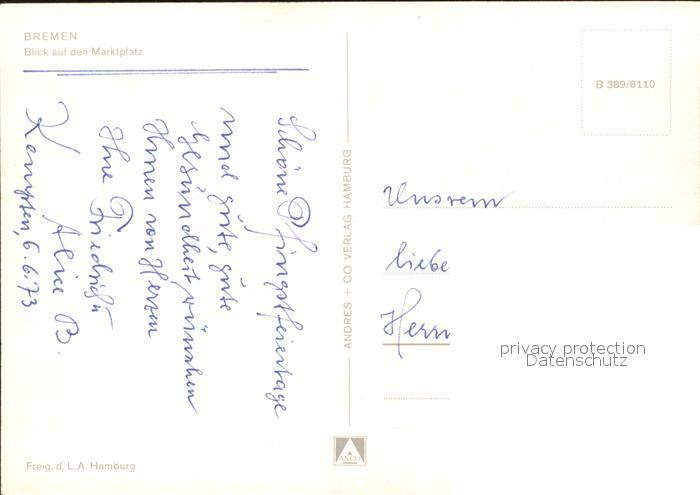 BREMEN
Blick auf den Marktplatz
Schöne Pfingstfeiertage
und gute, gute
Gesundheit wünschen
Ihnen von Herzen
Ihre Friedrich u
Alice B.
Kempten, 6.6.73
ANDRES + CO VERLAG HAMBURG
B 389/8110
Unsrem
liebe
Herrn
privacy protection
Datenschutz
ANCO
Freig. d. L.A. Hamburg